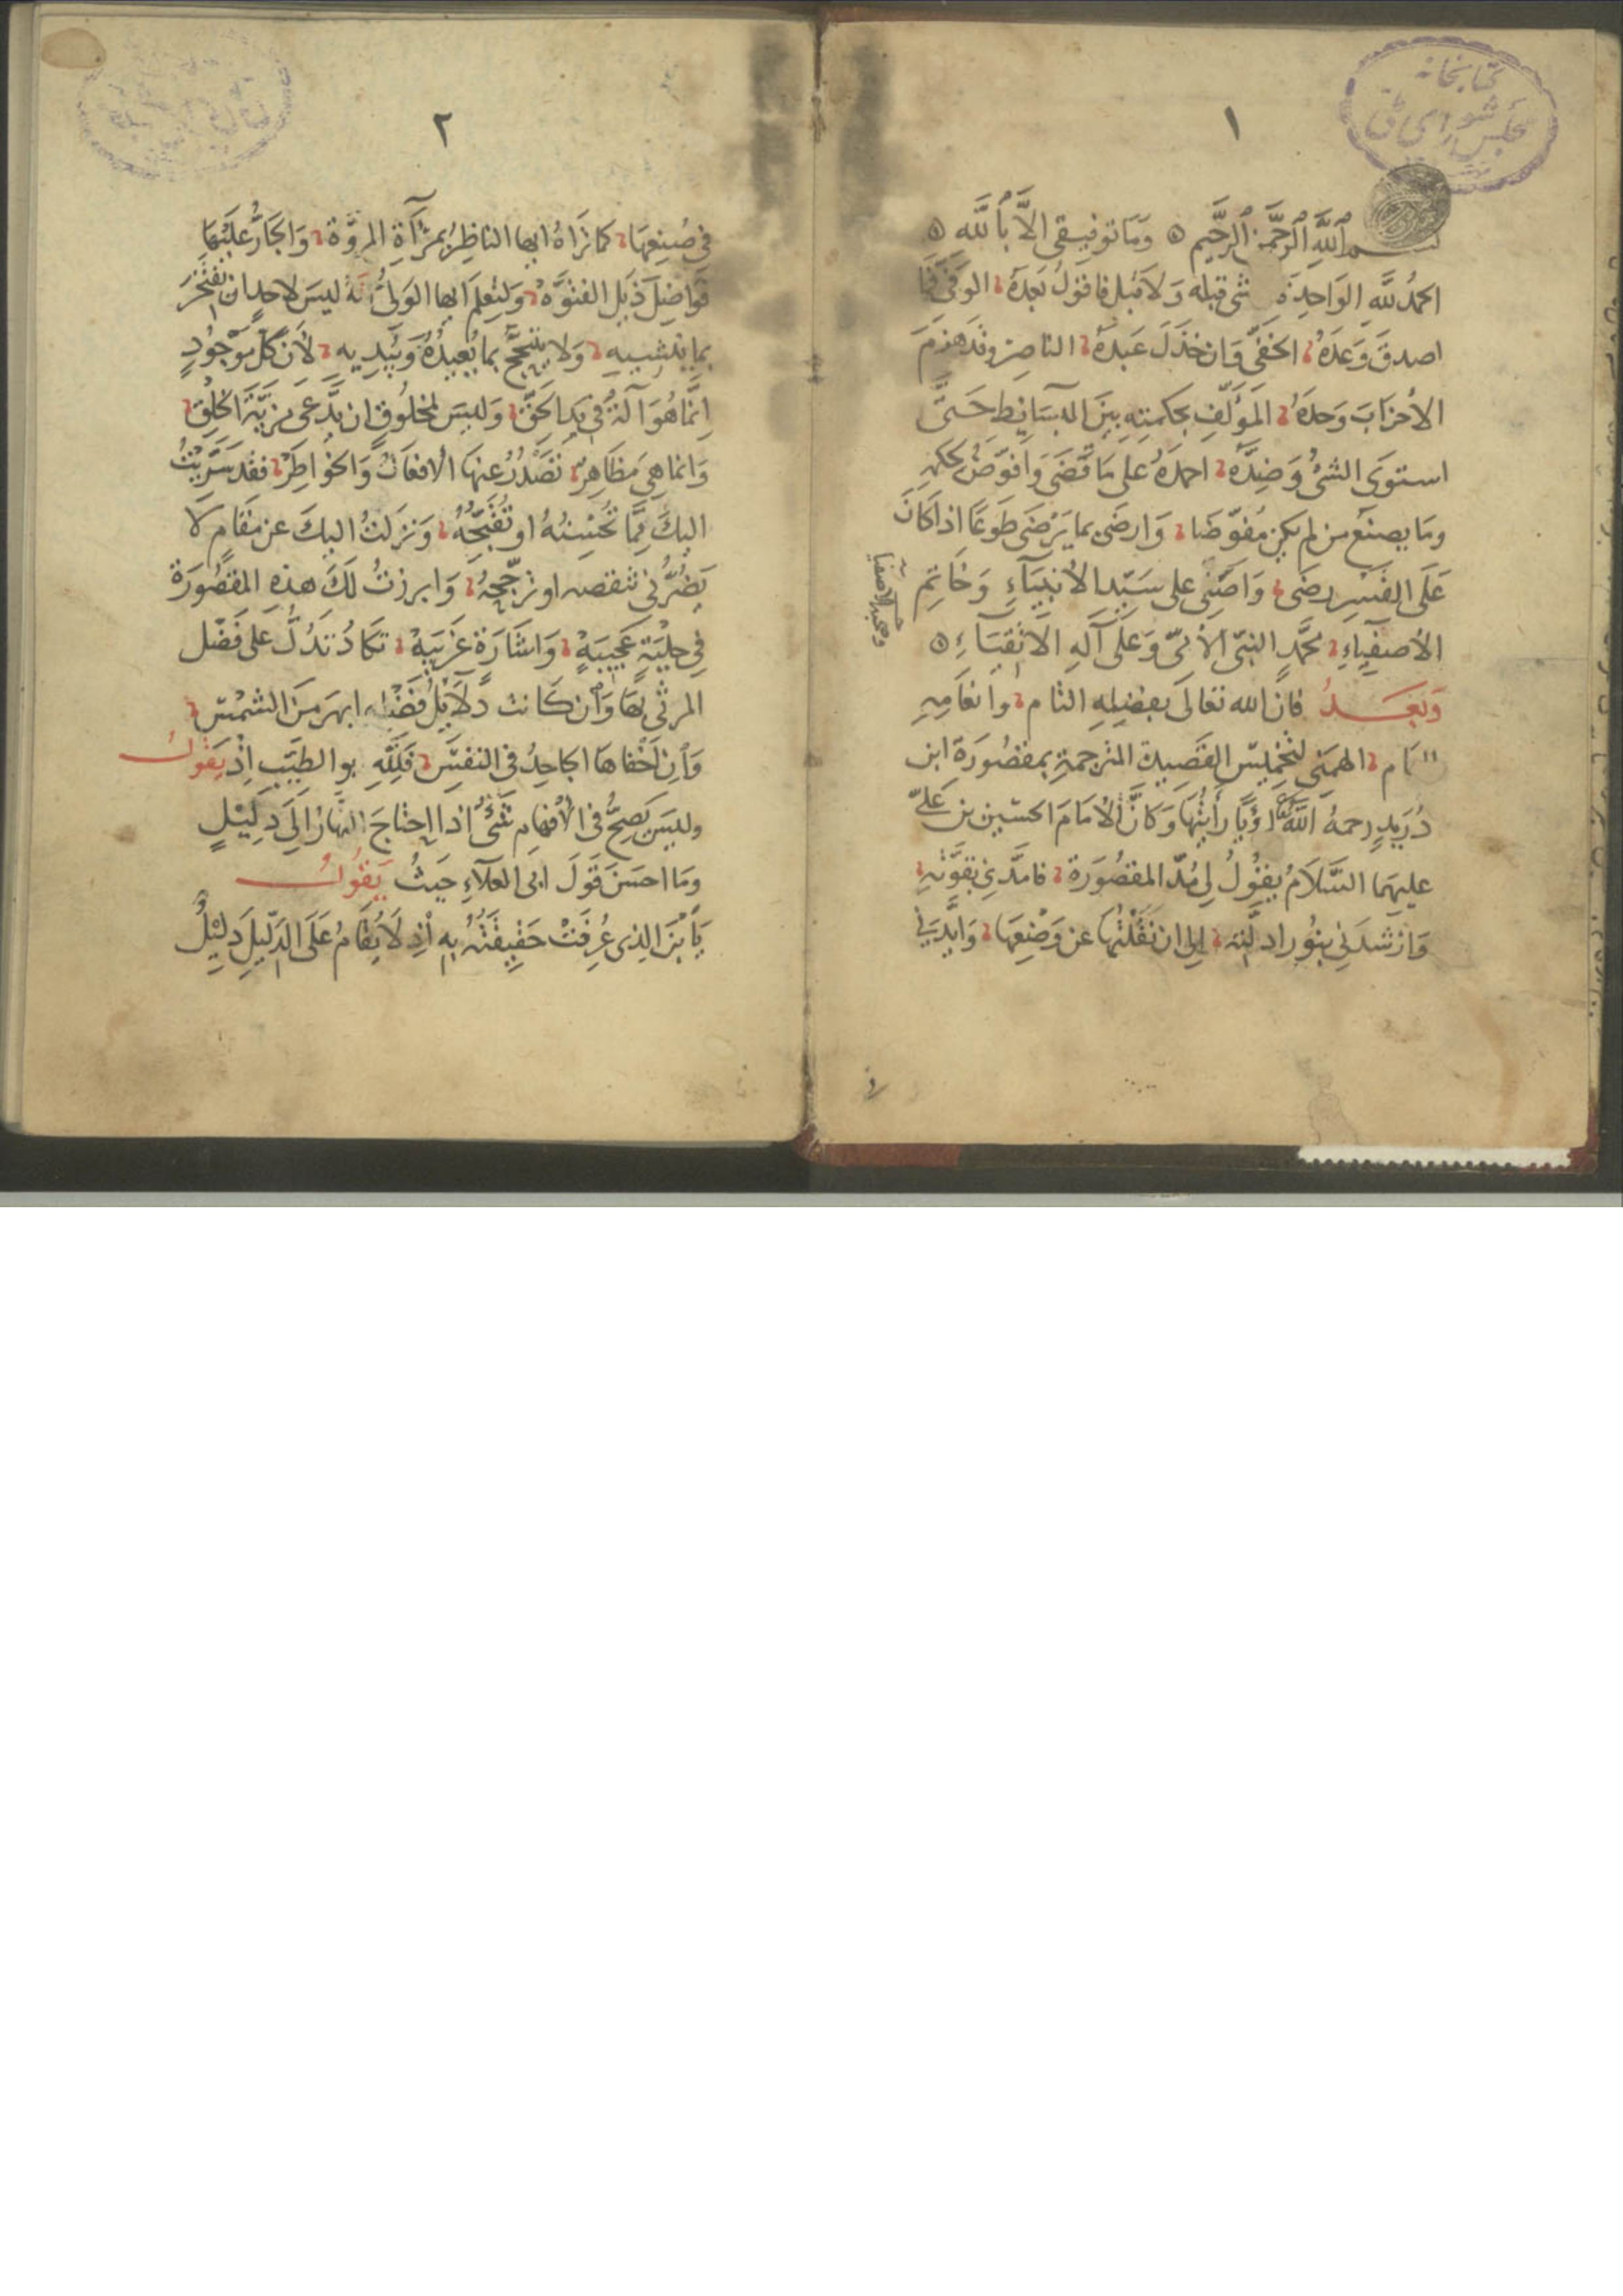 كتابخانه
مجلس شورای ملی
١
بسم الله الرحمن الرحيم ۞ وَمَا توفيقى الاَّ بالله ۞
الحمدُ للَّهِ الوَاحِدِ شئ قبله وَلاَ قبل فاقول بَعدَهُ الوَفىّ
اصدقَ وَعدَهُ الخفىّ وَان خذَلَ عَبدَهُ الناصِر وقد هزمَ
الأحزابَ وَحدَهُ المَؤلّفِ بحكمتِهِ بينَ البسَايط حَتىَّ
استوَى الشئُ وَضِدَّهُ احمدَهُ على مَا قضَى وَافوّضُ لحكمهِ
ومَا يصنَع من لم يكن مُفوّضا وَارضَى بما يَرْضَى طَوعًا اذا كانَ
عَلَى القَسرِ رضَى وَاصَلّى على سَيّد الأنبيَآءِ وَخَاتِمِ
الأصفيآءِ محمَّدٍ النبىّ الأمىّ وَعَلَى آلهِ الأتقيَآءِ ۞
ومحبه الاصفيآ
وَبَعـــدُ فان الله تعالَى بفضلِهِ التام وانعَامِهِ
الهمَنى لتخميس القَصِيدة المترجمةِ بمقصُورَة ابن
دُرَيدٍ رحمهُ اللَّهُ رؤيًا رأيتُهَا وَكانَّ الأمَامَ الحسَين بن علىّ
عليهمَا السَّلاَمُ يقُولُ لى مُدّ المقصُورَة فامدَّنى بقوَّتِهِ
وَارْشَدَنى بنُور ادلّته الى ان نقَلْتُهَا عن وَضْعِهَا وَايَّدَنى
٢
فى صُنعِهَا كمَا تَرَاهُ ايها الناظِرُ بمرْآةِ المروَّة وَالجَارُّ عليْهَا
فَوَاضِلَ ذَيلِ الفتوَّه وَلتعلَم ايها الوَلىُّ انَّهُ ليسَ لاحدٍ ان يفتخرَ
بما ينشِيهِ وَلا يتبجَّحَ بما يُعِيدُهُ وَيُبْدِيهِ لأَن كلَّ موْجُودٍ
اِنَّمَا هُوَ آلةٌ فى يَدِ الحَقّ وَليسَ لمخلُوقٍ ان يَدَّعى مزيَّةَ الخلق
وَانما هِىَ مَظَاهِرُ تَصْدُرُ عنهَا الأفعَالُ وَالخوَاطِرْ فقد سَرَّيْتُ
اليكَ ممَّا تُحْسِنُهُ او تُقَبِّحُهُ وَنزلتُ اليكَ عن مَقامٍ لاَ
يَضُرُّنى تنقصه او ترَجّحِهُ وَابرزتُ لَكَ هذِهِ المقصُورَة
فى حِليَةٍ عَجيبَةٍ وَاشَارَةٍ غَريبَةٍ تكادُ تَدُلُّ على فَضْل
المرثى بهَا وَانْ كانت دلآيلُ فَضْلِهِ ابهَر منَ الشمْسِ
وَانْ اَخْفاهَا الجاحِدُ فى النفسِ فَلِلَّهِ ابو الطيّب اِذْ يَقُولُ
وليسَ يَصحُّ فى الأفهَامِ شَئٌ اذا احتاجَ النهَارُ اِلَى دَلِيلِ
ومَا احسَنَ قَولَ ابى العلآءِ حيثُ يَقُولُ
يَا بنَ الذى عُرِفَتْ حَقيقَتُهُ بِهِ اذ لاَ يُقَامُ عَلَى الدَّليلِ دَلِيلُ